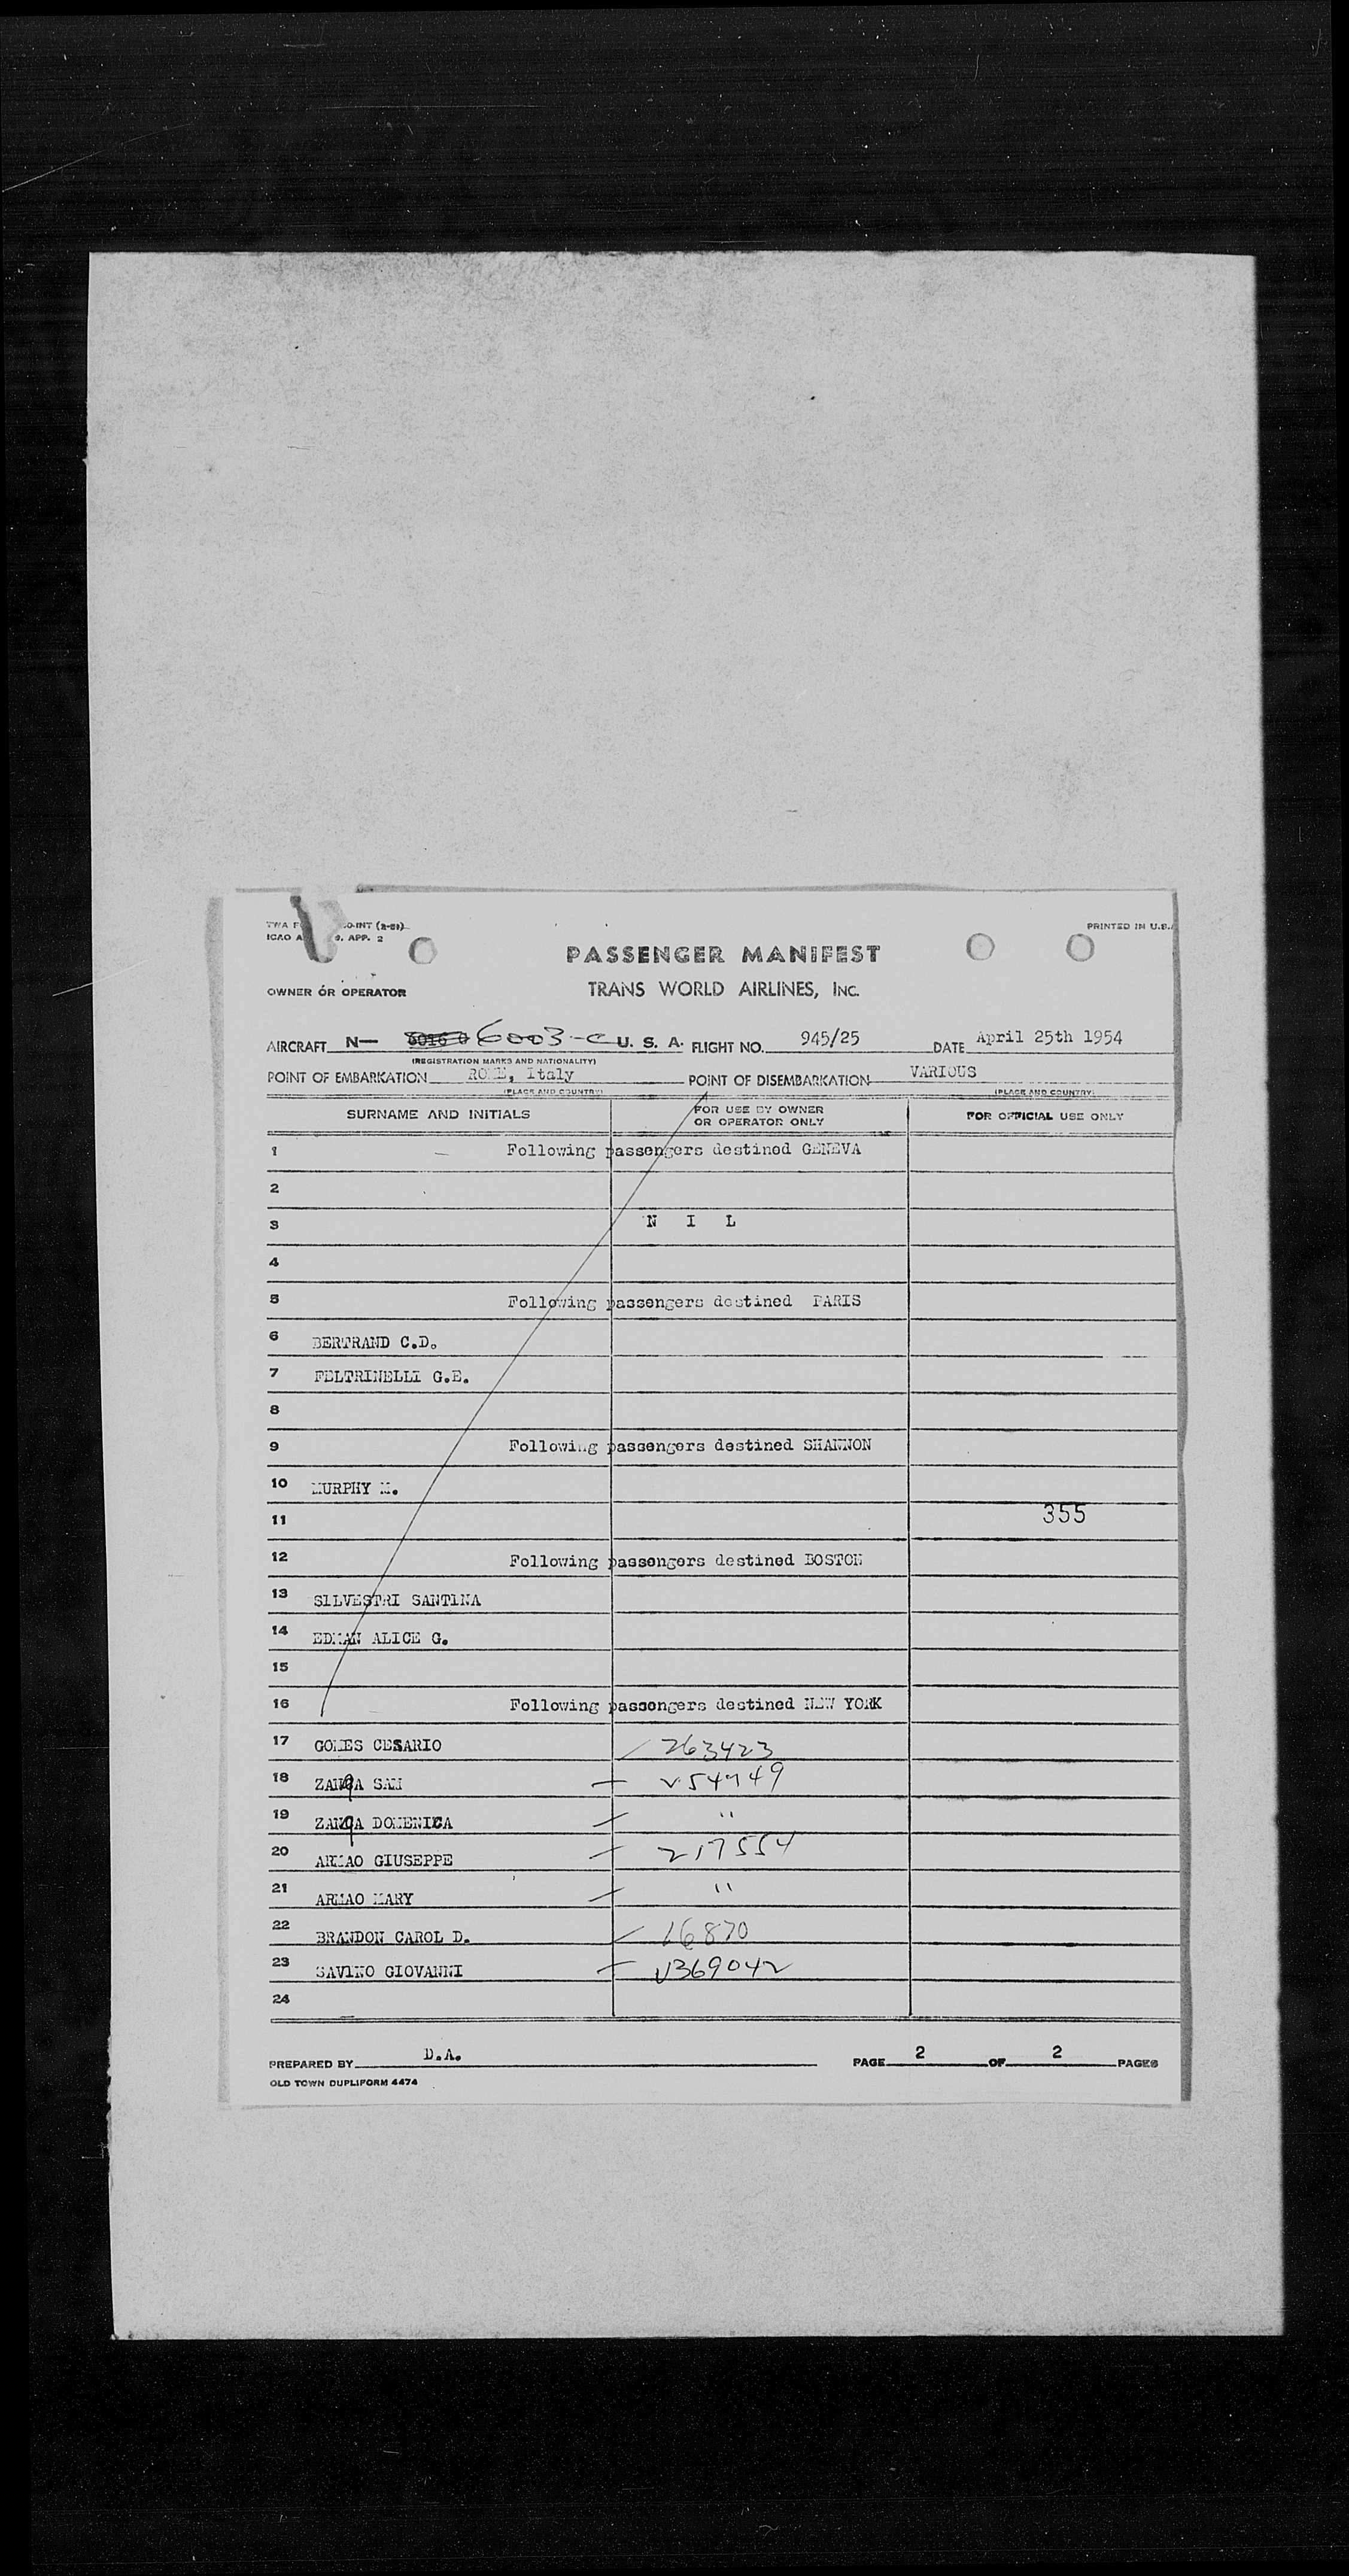 PRINTED IN U.S.
ICAO APP. 2
PASSENGER MANIFEST
OWNER OR OPERATOR TRANS WORLD AIRLINES, INC.
AIRCRAFT N— 6003-C U. S. A. FLIGHT NO. 945/25 DATE April 25th 1954
(REGISTRATION MARKS AND NATIONALITY)
POINT OF EMBARKATION ROME, Italy POINT OF DISEMBARKATION VARIOUS
(PLACE AND COUNTRY) (PLACE AND COUNTRY)
SURNAME AND INITIALS FOR USE BY OWNER OR OPERATOR ONLY FOR OFFICIAL USE ONLY
1 Following passengers destined GENEVA
2
3 N I L
4
5 Following passengers destined PARIS
6 BERTRAND C.D.
7 FELTRINELLI G.E.
8
9 Following passengers destined SHANNON
10 MURPHY M.
11 355
12 Following passengers destined BOSTON
13 SILVESTRI SANTINA
14 EDMAN ALICE G.
15
16 Following passengers destined NEW YORK
17 GOMES CESARIO 263423
18 SAM
19 DOMENICA "
20 ARMAO GIUSEPPE 217554
21 ARMAO MARY "
22 BRANDON CAROL D. 16870
23 SAVINO GIOVANNI V369042
24
PREPARED BY D.A. PAGE 2 OF 2 PAGES
OLD TOWN DUPLIFORM 4474